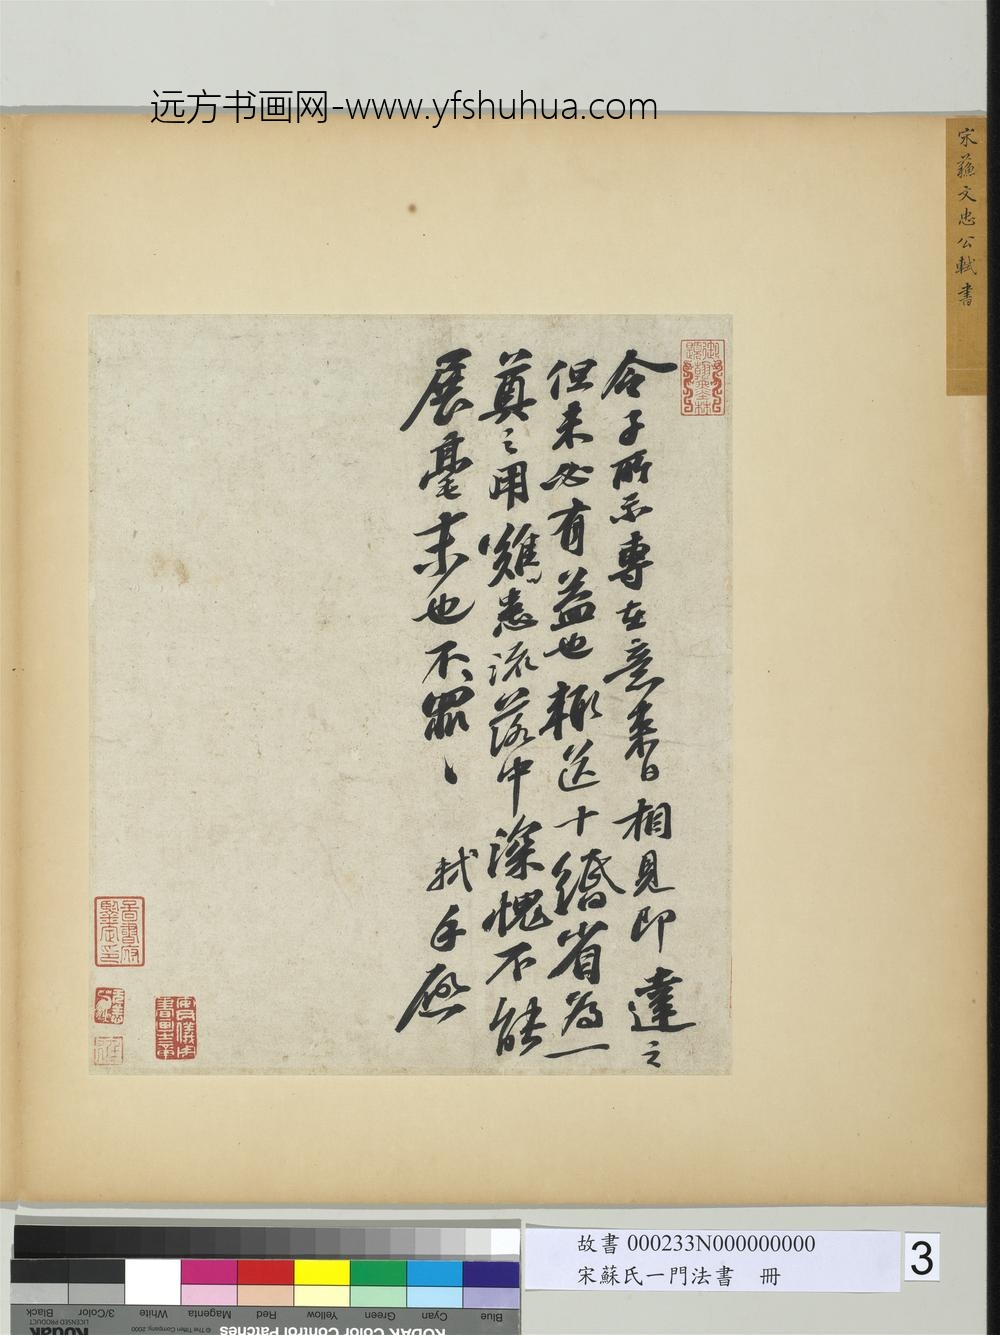 远方书画网-www.yfshuhua.com
宋蘇文忠公軾書
令子所示專在意來日相見即達之
但未必有益也輒送十緡省為一
奠之用雖患流落中深愧不能
展毫末也不罪〻軾手啟
安儀周家珍藏
故書 000233N000000000
宋蘇氏一門法書 冊
3
Blue
Cyan
Green
Yellow
Red
Magenta
White
3/Color
Black
KODAK Color Control Patches
© The Tiffen Company, 2000
Kodak
LICENSED PRODUCT